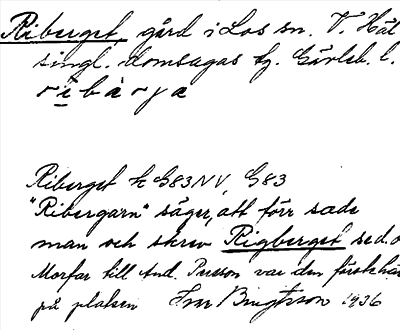 Riberget, gård i Los sn. V. Häl
singl. domsagas tg. Gävleb. l.
ribàrja
Riberget k G83NV, G83
"Ribergarn" säger, att förr sade
man och skrev Rigberget sed.
Morfar till And. Persson var den första
på platsen Ivar Bengtsson 1936